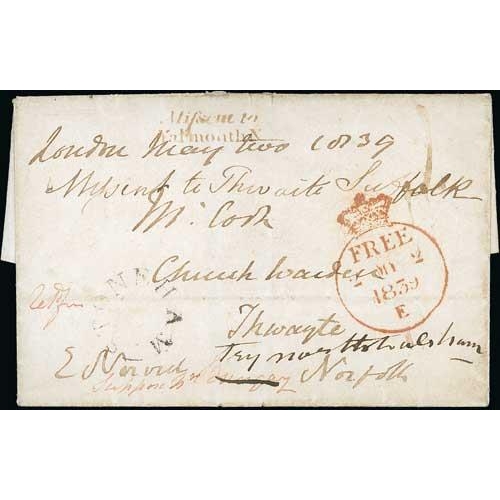 Missent to
Yarmouth N
London May two 1839
Missent to Thwaite Suffolk
Mr Cook
Church Warden
Thwayte
Try North Walsham
Norfolk
FREE
2 MY 2
1839
E